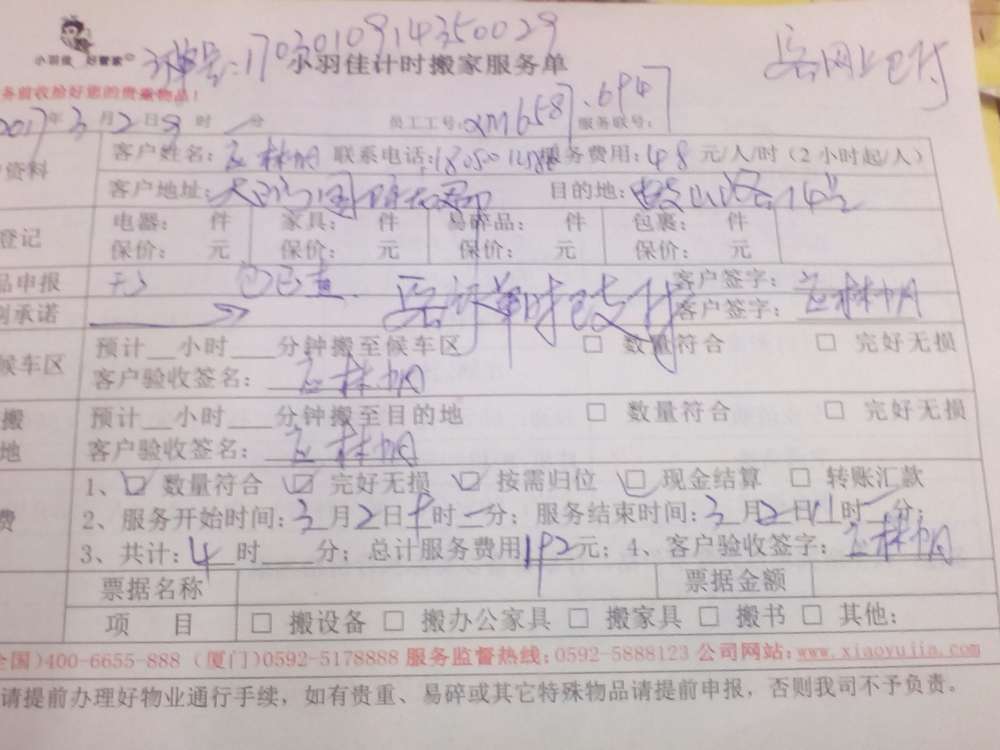 小羽佳 好管家
订单号:1703010914350029
小羽佳计时搬家服务单
客网上已付
务前收拾好您的贵重物品!
2017年3月2日9时一分 员工工号:XM6587.6947 服务联号:
资料 客户姓名: 林帆 联系电话: 服务费用:48元/人/时(2小时起/人)
客户地址: 目的地:
登记 电器: 件 家具: 件 易碎品: 件 包裹: 件
保价: 元 保价: 元 保价: 元 保价: 元
品申报 无 已查 客户签字: 林帆
承诺 客订单时已支付 客户签字: 林帆
候车区 预计__小时___分钟搬至候车区 □ 数量符合 □ 完好无损
客户验收签名: 林帆
搬 预计__小时___分钟搬至目的地 □ 数量符合 □ 完好无损
地 客户验收签名: 林帆
1、☑ 数量符合 ☑ 完好无损 ☑ 按需归位 ☑ 现金结算 □ 转账汇款
费 2、服务开始时间:3月2日9时一分;服务结束时间:3月2日11时一分;
3、共计:4时___分;总计服务费用192元;4、客户验收签字: 林帆
票据名称 票据金额
项 目 □ 搬设备 □ 搬办公家具 □ 搬家具 □ 搬书 □ 其他:
全国)400-6655-888 (厦门)0592-5178888 服务监督热线:0592-5888123 公司网站:www.xiaoyujia.com
请提前办理好物业通行手续,如有贵重、易碎或其它特殊物品请提前申报,否则我司不予负责。